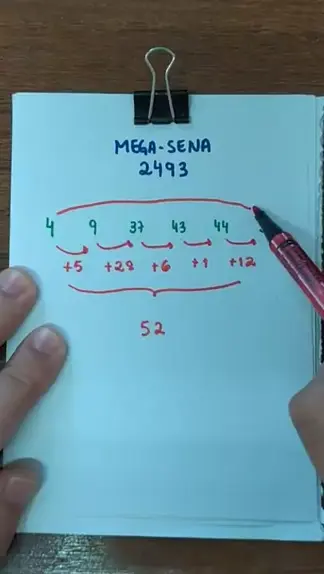 MEGA-SENA
2493
4 9 37 43 44
+5 +28 +6 +1 +12
52